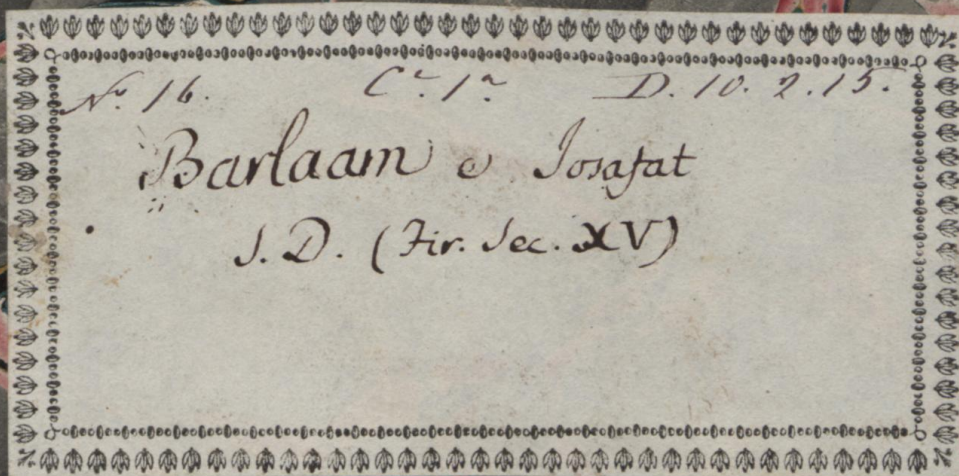 No. 16. Ca. 1a D. 10. 2. 15.
Barlaam e Josafat
S. D. (Fir. Sec. XV)